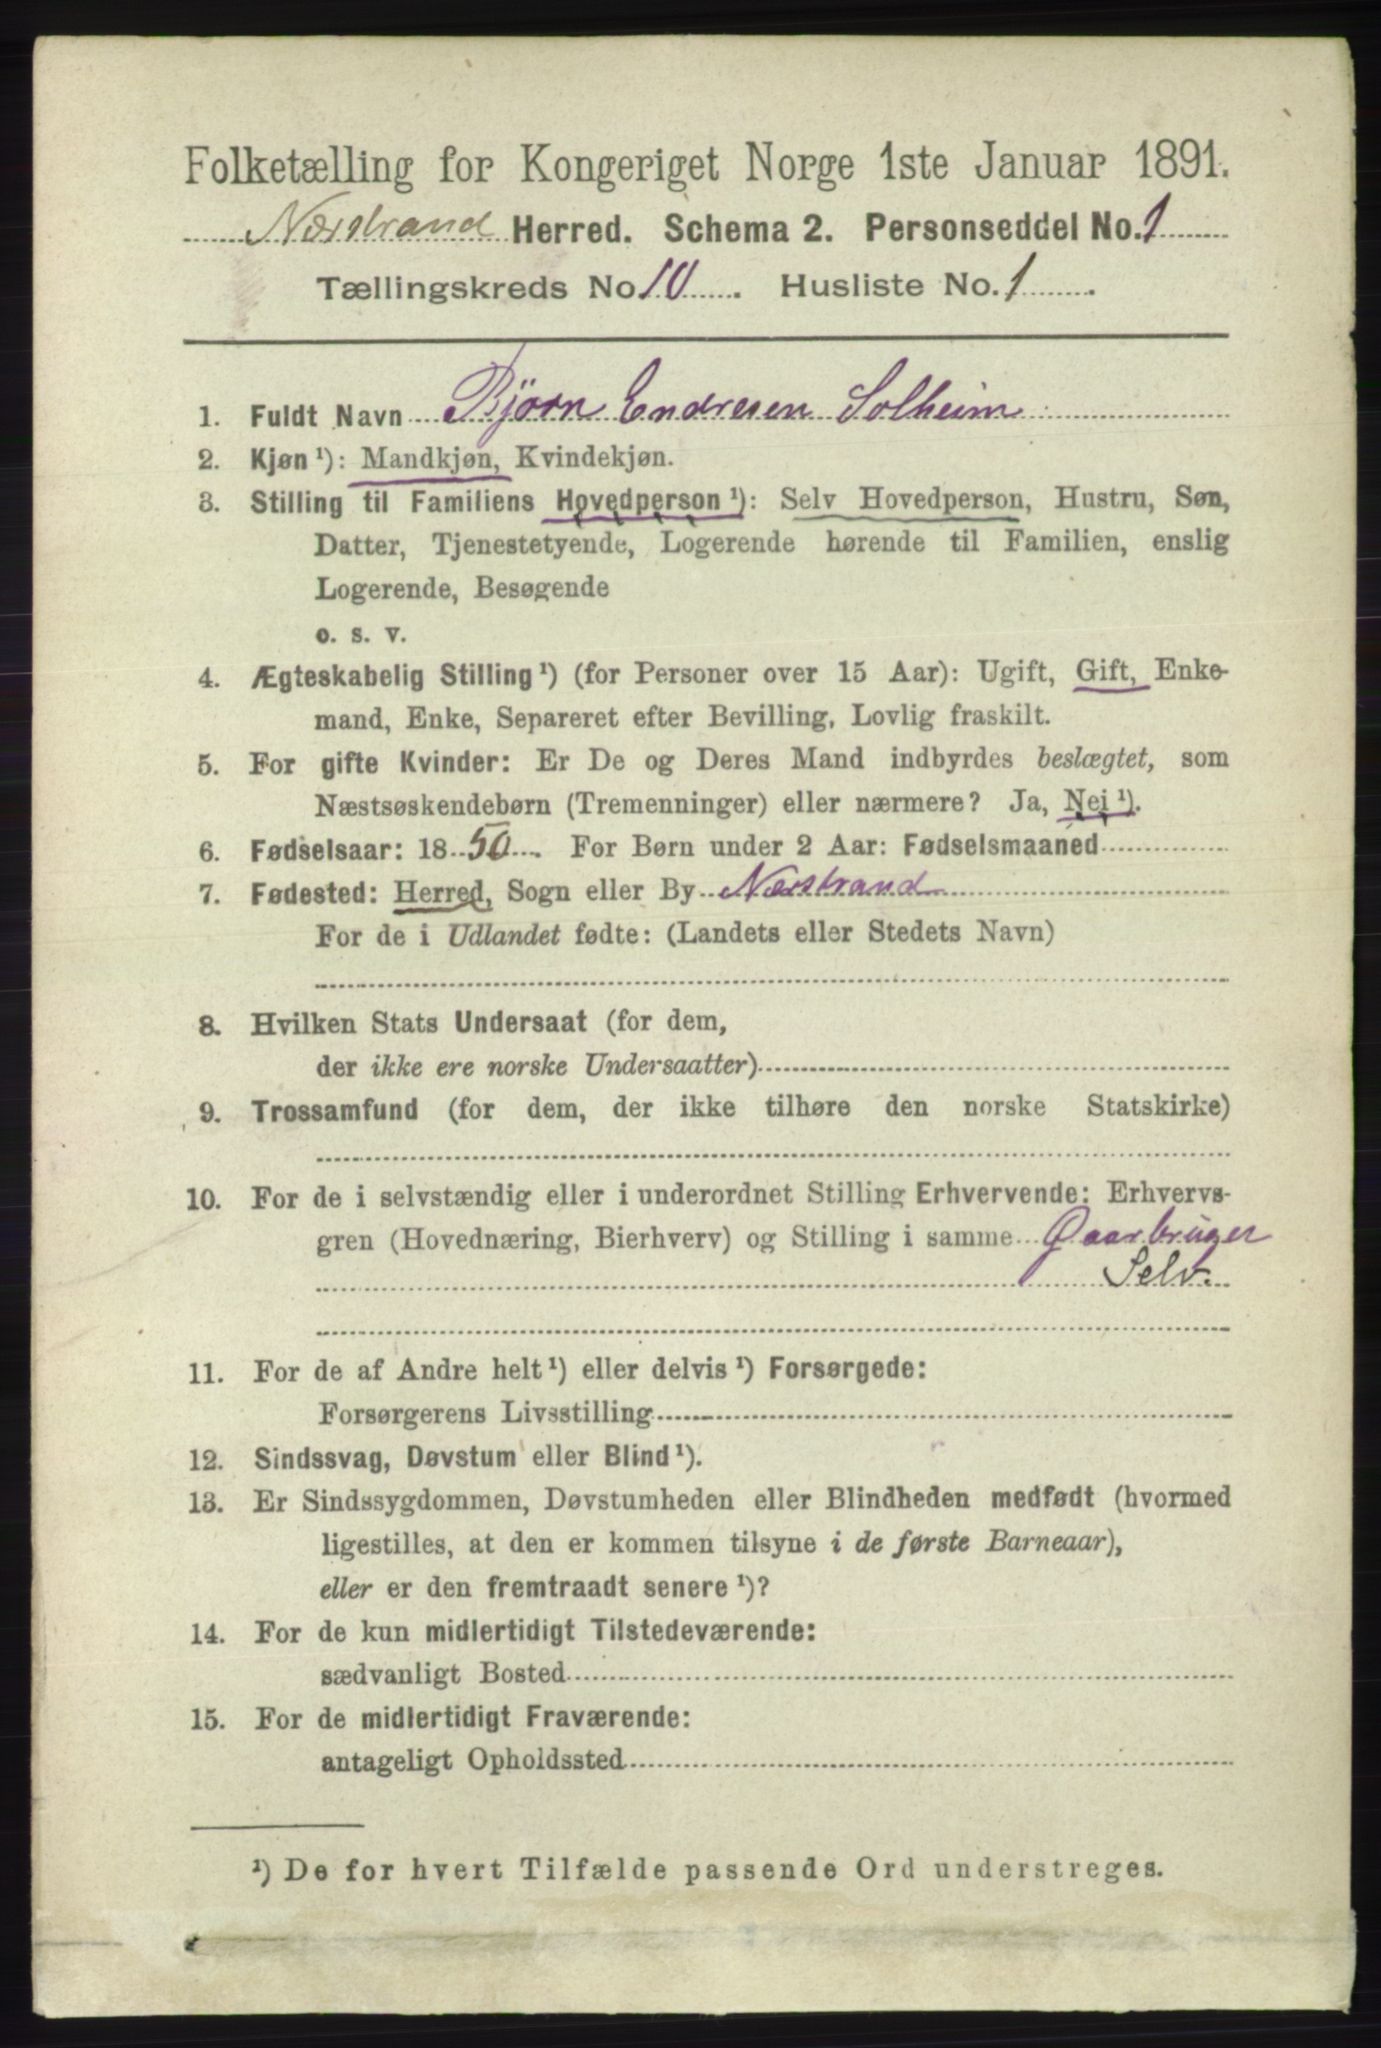 Folketælling for Kongeriget Norge 1ste Januar 1891.
Nærstrand Herred. Schema 2. Personseddel No. 1
Tællingskreds No 10. Husliste No. 1.
1. Fuldt Navn Björn Endresen Solheim
2. Kjøn ¹): Mandkjøn, Kvindekjøn.
3. Stilling til Familiens Hovedperson ¹): Selv Hovedperson, Hustru, Søn,
Datter, Tjenestetyende, Logerende hørende til Familien, enslig
Logerende, Besøgende
o. s. v.
4. Ægteskabelig Stilling ¹) (for Personer over 15 Aar): Ugift, Gift, Enke-
mand, Enke, Separeret efter Bevilling, Lovlig fraskilt.
5. For gifte Kvinder: Er De og Deres Mand indbyrdes beslægtet, som
Næstsøskendebørn (Tremenninger) eller nærmere? Ja, Nei ¹).
6. Fødselsaar: 1850. For Børn under 2 Aar: Fødselsmaaned
7. Fødested: Herred, Sogn eller By Nærstrand
For de i Udlandet fødte: (Landets eller Stedets Navn)
8. Hvilken Stats Undersaat (for dem,
der ikke ere norske Undersaatter)
9. Trossamfund (for dem, der ikke tilhøre den norske Statskirke)
10. For de i selvstændig eller i underordnet Stilling Erhvervende: Erhvervs-
gren (Hovednæring, Bierhverv) og Stilling i samme Gaarbruger
Selv.
11. For de af Andre helt ¹) eller delvis ¹) Forsørgede:
Forsørgerens Livsstilling
12. Sindssvag, Døvstum eller Blind ¹).
13. Er Sindssygdommen, Døvstumheden eller Blindheden medfødt (hvormed
ligestilles, at den er kommen tilsyne i de første Barneaar),
eller er den fremtraadt senere ¹)?
14. For de kun midlertidigt Tilstedeværende:
sædvanligt Bosted
15. For de midlertidigt Fraværende:
antageligt Opholdssted
¹) De for hvert Tilfælde passende Ord understreges.